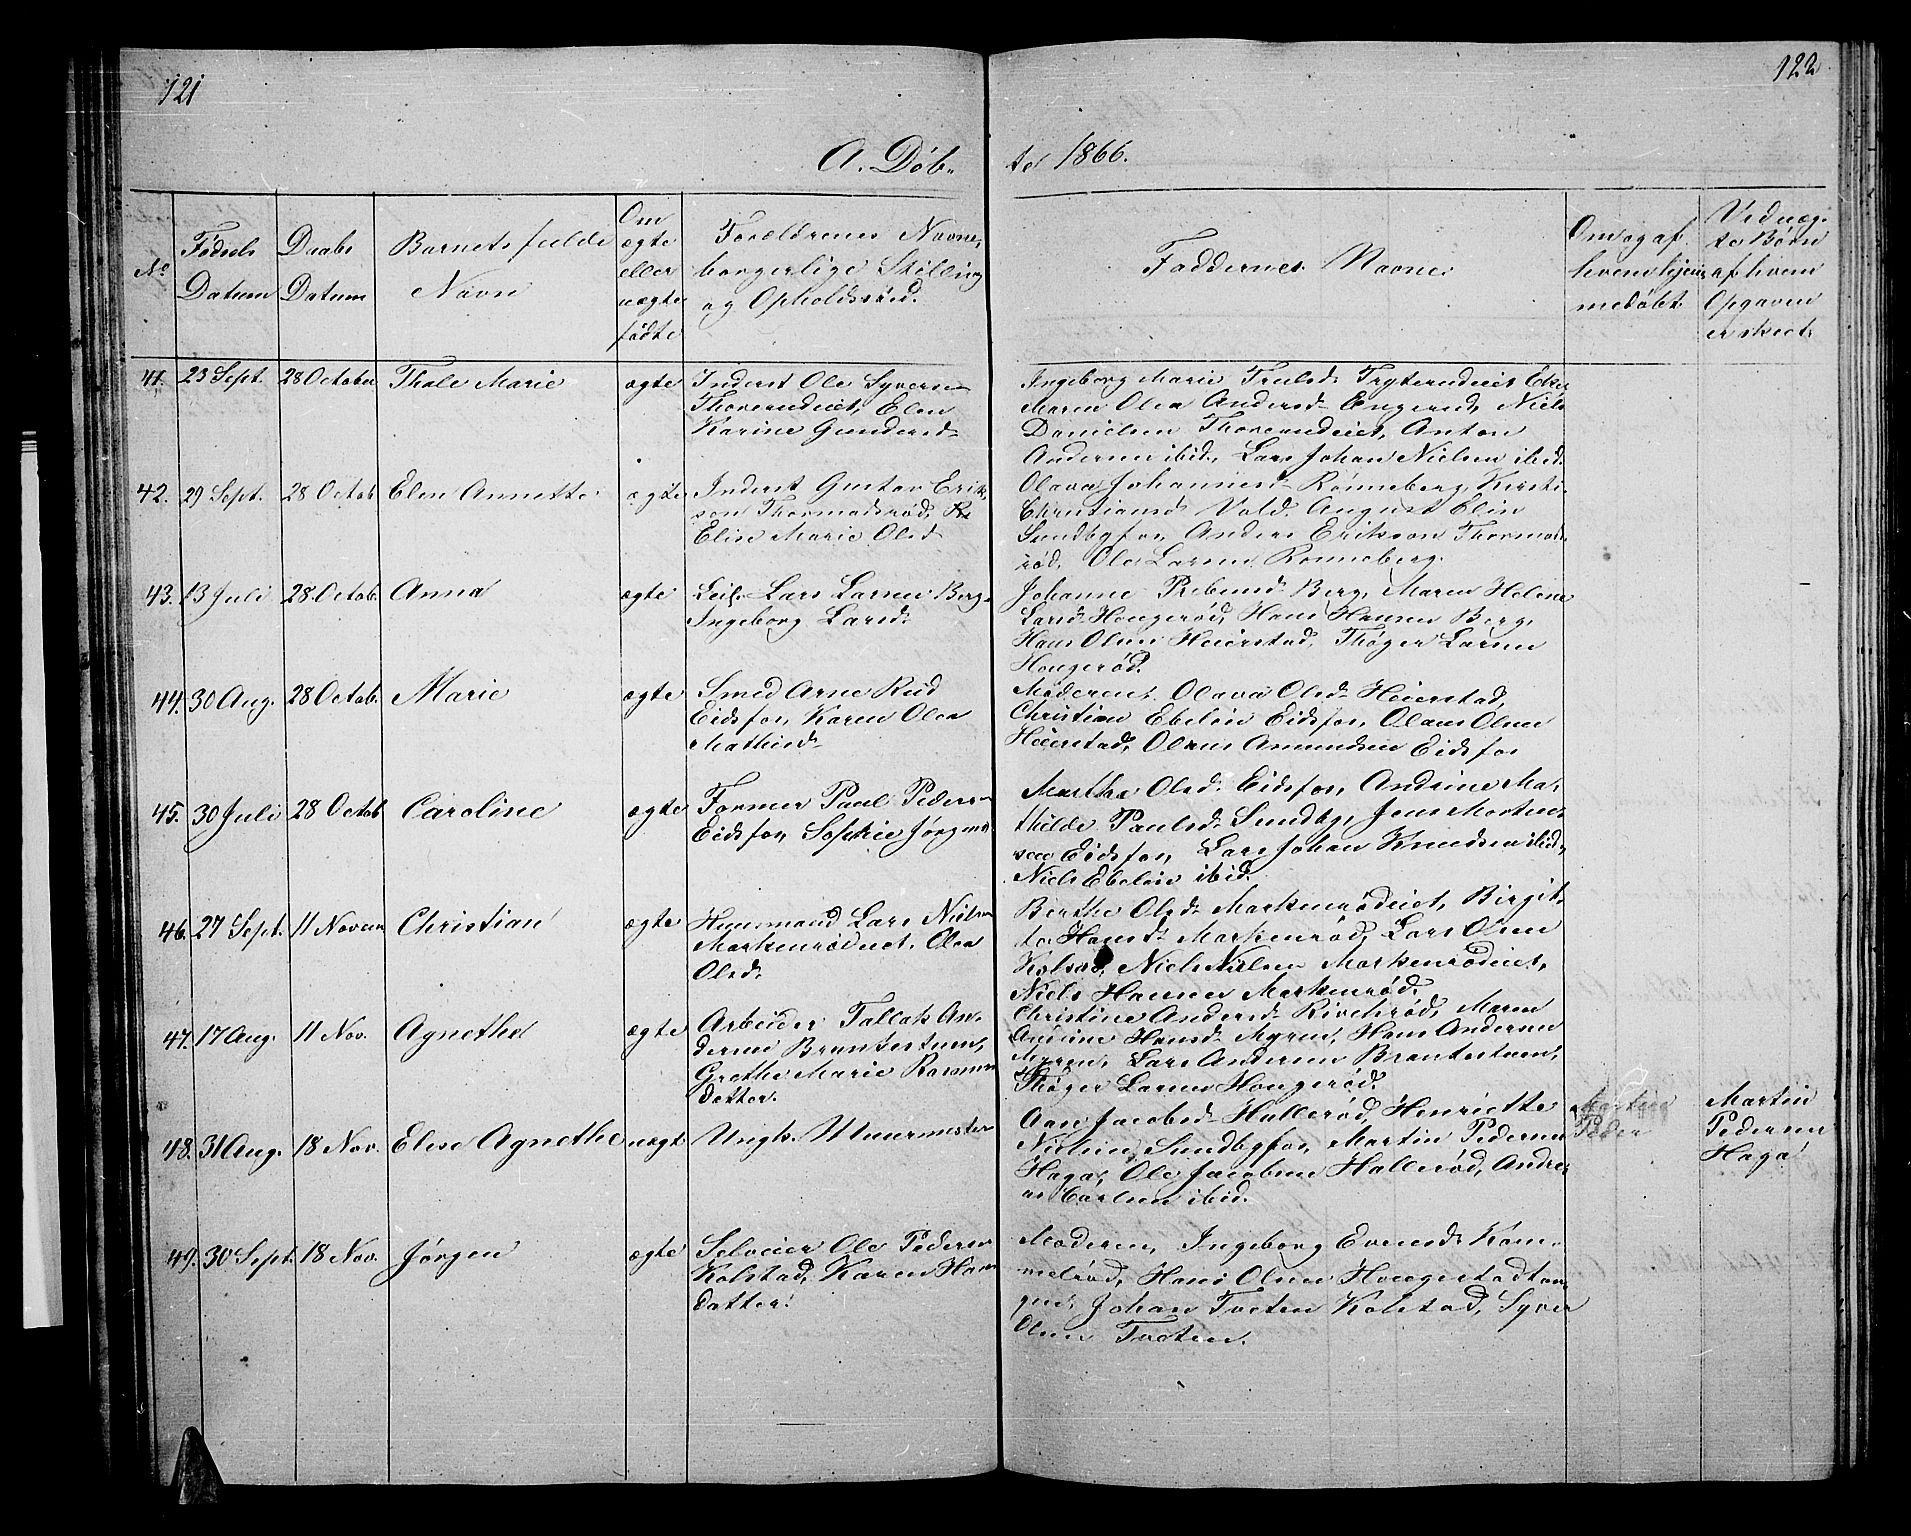 121
122
A. Døb-
te 1866.
No
Fødsels
Datum
Daabs
Datum
Barnets fulde
Navn
Om
ægte
eller
uægte
fødte
Forældrenes Navne,
borgerlige Stilling
og Opholdssted.
Faddernes Navne.
Om og af
hvem hjem-
medøbt.
Ved uæg-
te Børn
af hvem
Opgaven
er skeet.
41. 23 Sept. 28 October Thale Marie ægte
Inderst Ole Syversen
Thorerudeiet, Elen
Karine Gundersd.
Ingeborg Marie Trulsd. Tryterudeiet
Maren Olea Andersd. Engerud, Niels
Danielsen Thorerudeiet, Anton
Andersen ibid., Lars Johan Nielsen ibid.
42. 29 Sept. 28 Octob. Elen Annette ægte
Inderst Gustav Erik-
son Thormodsrød,
Elise Marie Olsd.
Olava Johannesd. Rønneberg, Kirsti-
Christiansd. Vold. August Elin
Sundbyfos, Anders Erikson Thormods-
rød, Ole Larsen Rønneberg.
43. 13 Juli 28 Octob. Anna ægte
Leil. Lars Larsen Berg,
Ingeborg Larsd.
Johanne Prebensd. Berg, Maren Helene
Larsd. Hougerød, Hans Hansen Berg,
Hans Olsen Heierstad, Thøger Larsen
Hougerød.
44. 30 Aug. 28 Octob. Marie ægte
Smed Arne Rud
Eidsfos, Karen Olea
Mathisd.
Moderen, Olava Olsd. Heierstad,
Christian Ebeløn Eidsfos, Olaus Olsen
Heierstad, Olaus Amundsen Eidsfos
45. 30 Juli 28 Octob Caroline ægte
Former Paul Pedersen
Eidsfos, Sophie Jørgensd.
Marthe Olsd. Eidsfos, Andrine Ma-
thilde Paulsd. Sundby, Jens Morten-
sen Eidsfos, Lars Johan Knudsen ibid.,
Niels Ebeløn ibid.
46. 27 Sept. 11 Novem Christian ægte
Huusmand Lars Nielsen
Markenrødeiet, Olea
Olsd.
Berthe Olsd. Markenrødeiet, Birgit-
te Hansd. Markenrød, Lars Olsen
Kolsrød, Niels Nielsen Markenrødeiet,
Niels Hansen Markenrød.
47. 17 Aug. 11 Nov. Agnethe ægte
Arbeider Tallak An-
dersen Brantestuen,
Grethe Marie Rasmus
datter.
Christine Andersd. Rivelsrød, Maren
Andrine Hansd. Myren, Hans Andersen
Myren, Lars Andersen Brantestuen,
Thøger Larsen Hougerød.
48. 31 Aug. 18 Nov. Elise Agnethe uægt
Ungk. Muurmester
Aan Jacobsd. Hallerød, Henriette
Nielsen Sundbyfos, Martin Pedersen
Haga, Ole Jacobsen Hallerød, Andre-
as Carlsen ibid.
Martin
Peder
Martin
Pedersen
Haga
49. 30 Sept. 18 Nov. Jørgen ægte
Selveier Ole Pedersen
Kolstad, Karen Hans
datter.
Moderen, Ingeborg Evensd. Kom-
melrød, Hans Olsen Haugestadtan-
gen, Johan Tveten Kolstad, Syver
Olsen Tveten.